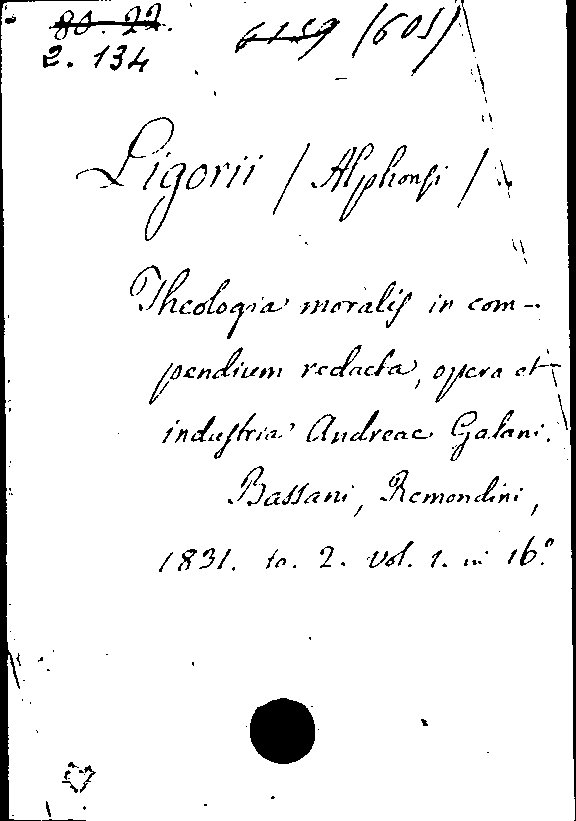 80. 22.
2. 134
6159 (601)
Ligorii / Alphonsi /
Theologia moralis in com-
pendium redacta, opera et
industria Andreae Galani.
Bassani, Remondini,
1831. to. 2. Vol. 1. in 16.º